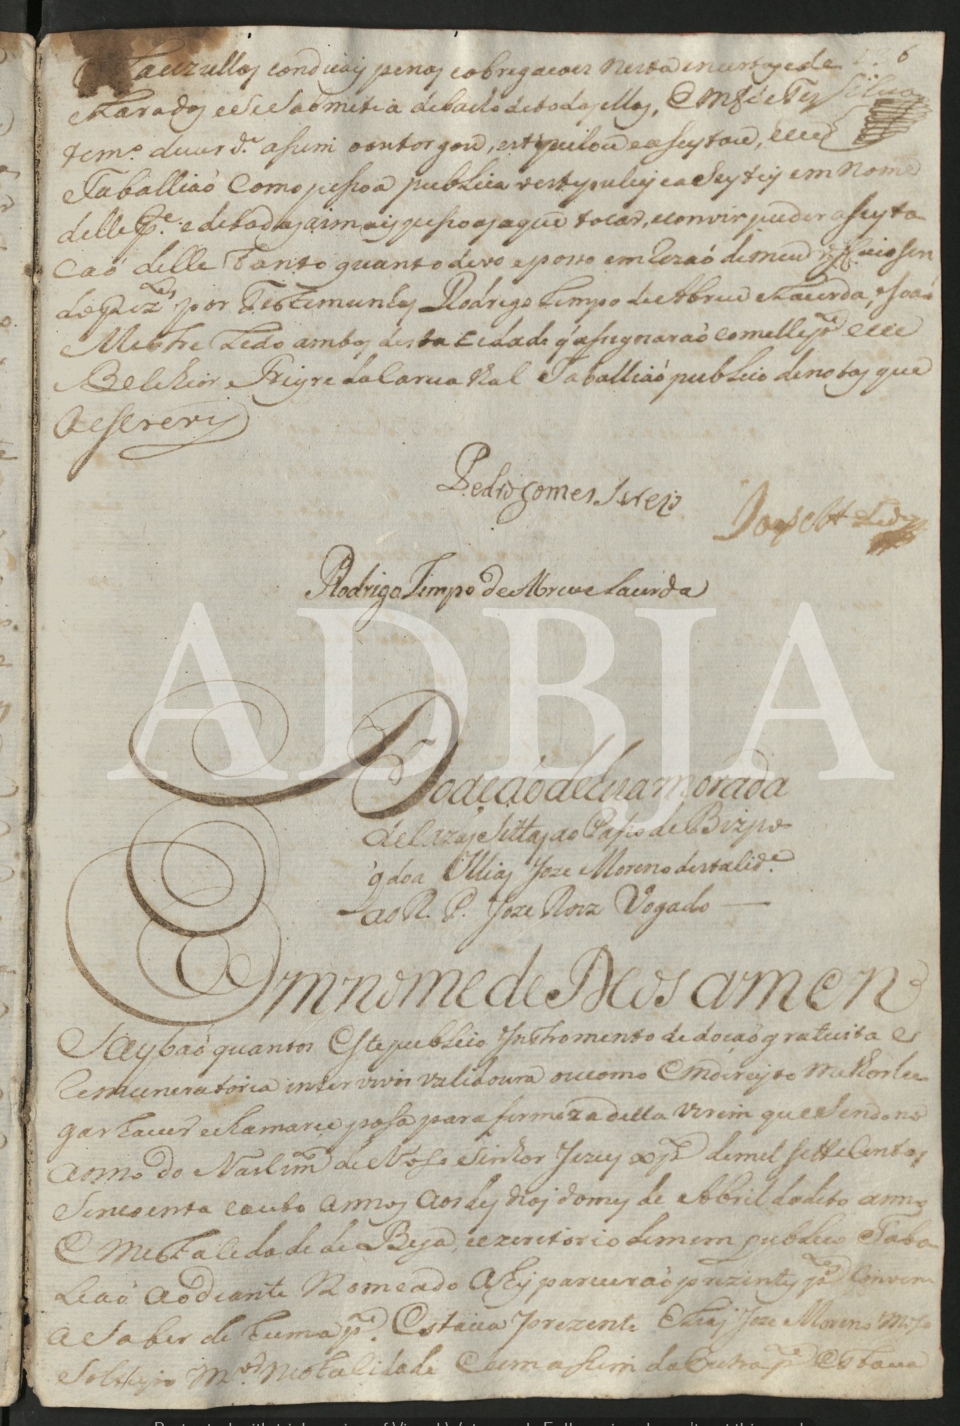 6
clauzullas condicois penas e obrigacois nesta escretura de
claradas e se sometia debaixo de todas ellas, Em fé e Tes
temo. de verde. asim o outorgou, estipulou e aseytou, e eu
Silva
Taballiaó Como pesoa publica o estypuley e aseytey em Nome
delle pe. e de todas as mais pesoas a que tocar, e convir puder aseyta
caó delle Tanto quanto devo e poso em Rezaó de meu officio sen
do prez. por Testemunhas Rodrigo Limpo de Abreu Lacerda, e Joaó
Mestre Ledo ambos desta Cidade q asignaraó com elle pe. e eu
Belchior Freyre da Carvalhal Taballiaó publico de notas que
o escrevy
Pedro gomes
Ledo
Rodrigo Limpo de Abreu Lacerda
Doacaó de hua morada
de cazas sittas ao Passo do Bizpo
q doa Ellias Joze Moreno desta cide.
ao R. P. Joze Roiz Vogado
Em nome de Deos amen
Saybaó quantos Este publico Instromento de doacaó gratuita e
Remuneratoria inter vivos valedoura ou como Em direyto melhor lu
gar haver e chamarse posa para firmeza della virem que sendo no
anno do Nascimo de Noso Senhor Jezus xpto de mil sette Centos
Sincoenta e outo Annos aos des dias do mes de Abril do dito anno
Em esta Cidade de Beja, e ezcritorio de mim publico Taba
Leaó ao diante Nomeado Ahy pareceraó prezentes
a Saber de huma pe. Estava prezente Elias Joze Moreno
Solteyro mor. nesta Cidade E em asim da outra pe. Estava
ADBJA